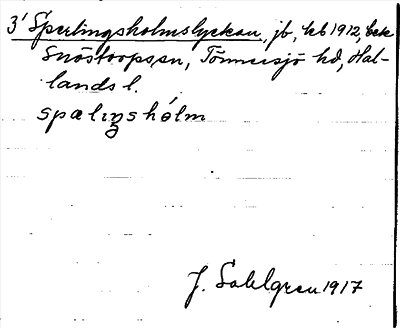 3' Sperlingsholmslyckan, jb, kb 1912, bck
Snöstorps sn, Tönnersjö hd, Hal-
lands l.
spæliŋshólm
J. Sahlgren 1917